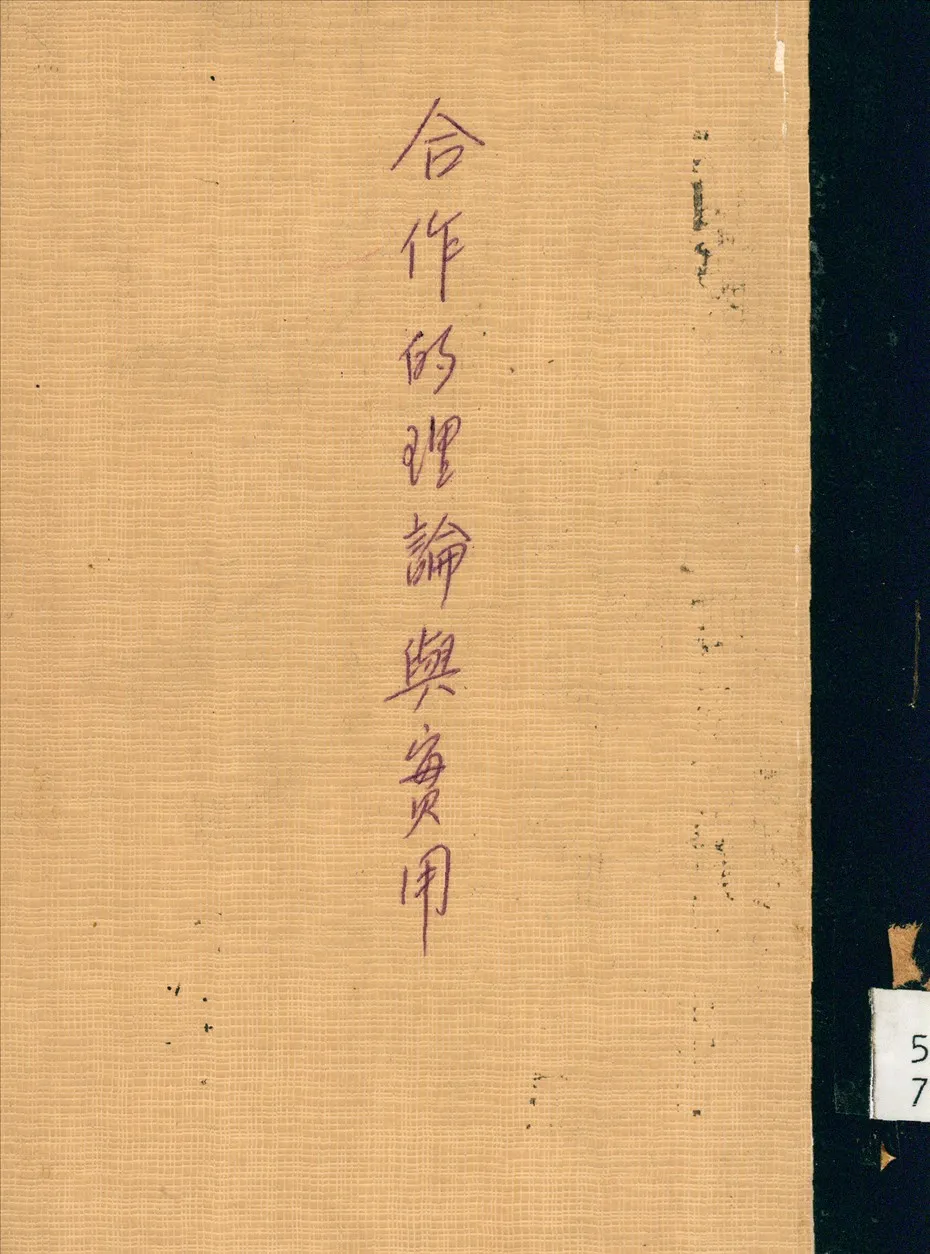 合作的理論與實用
5
7